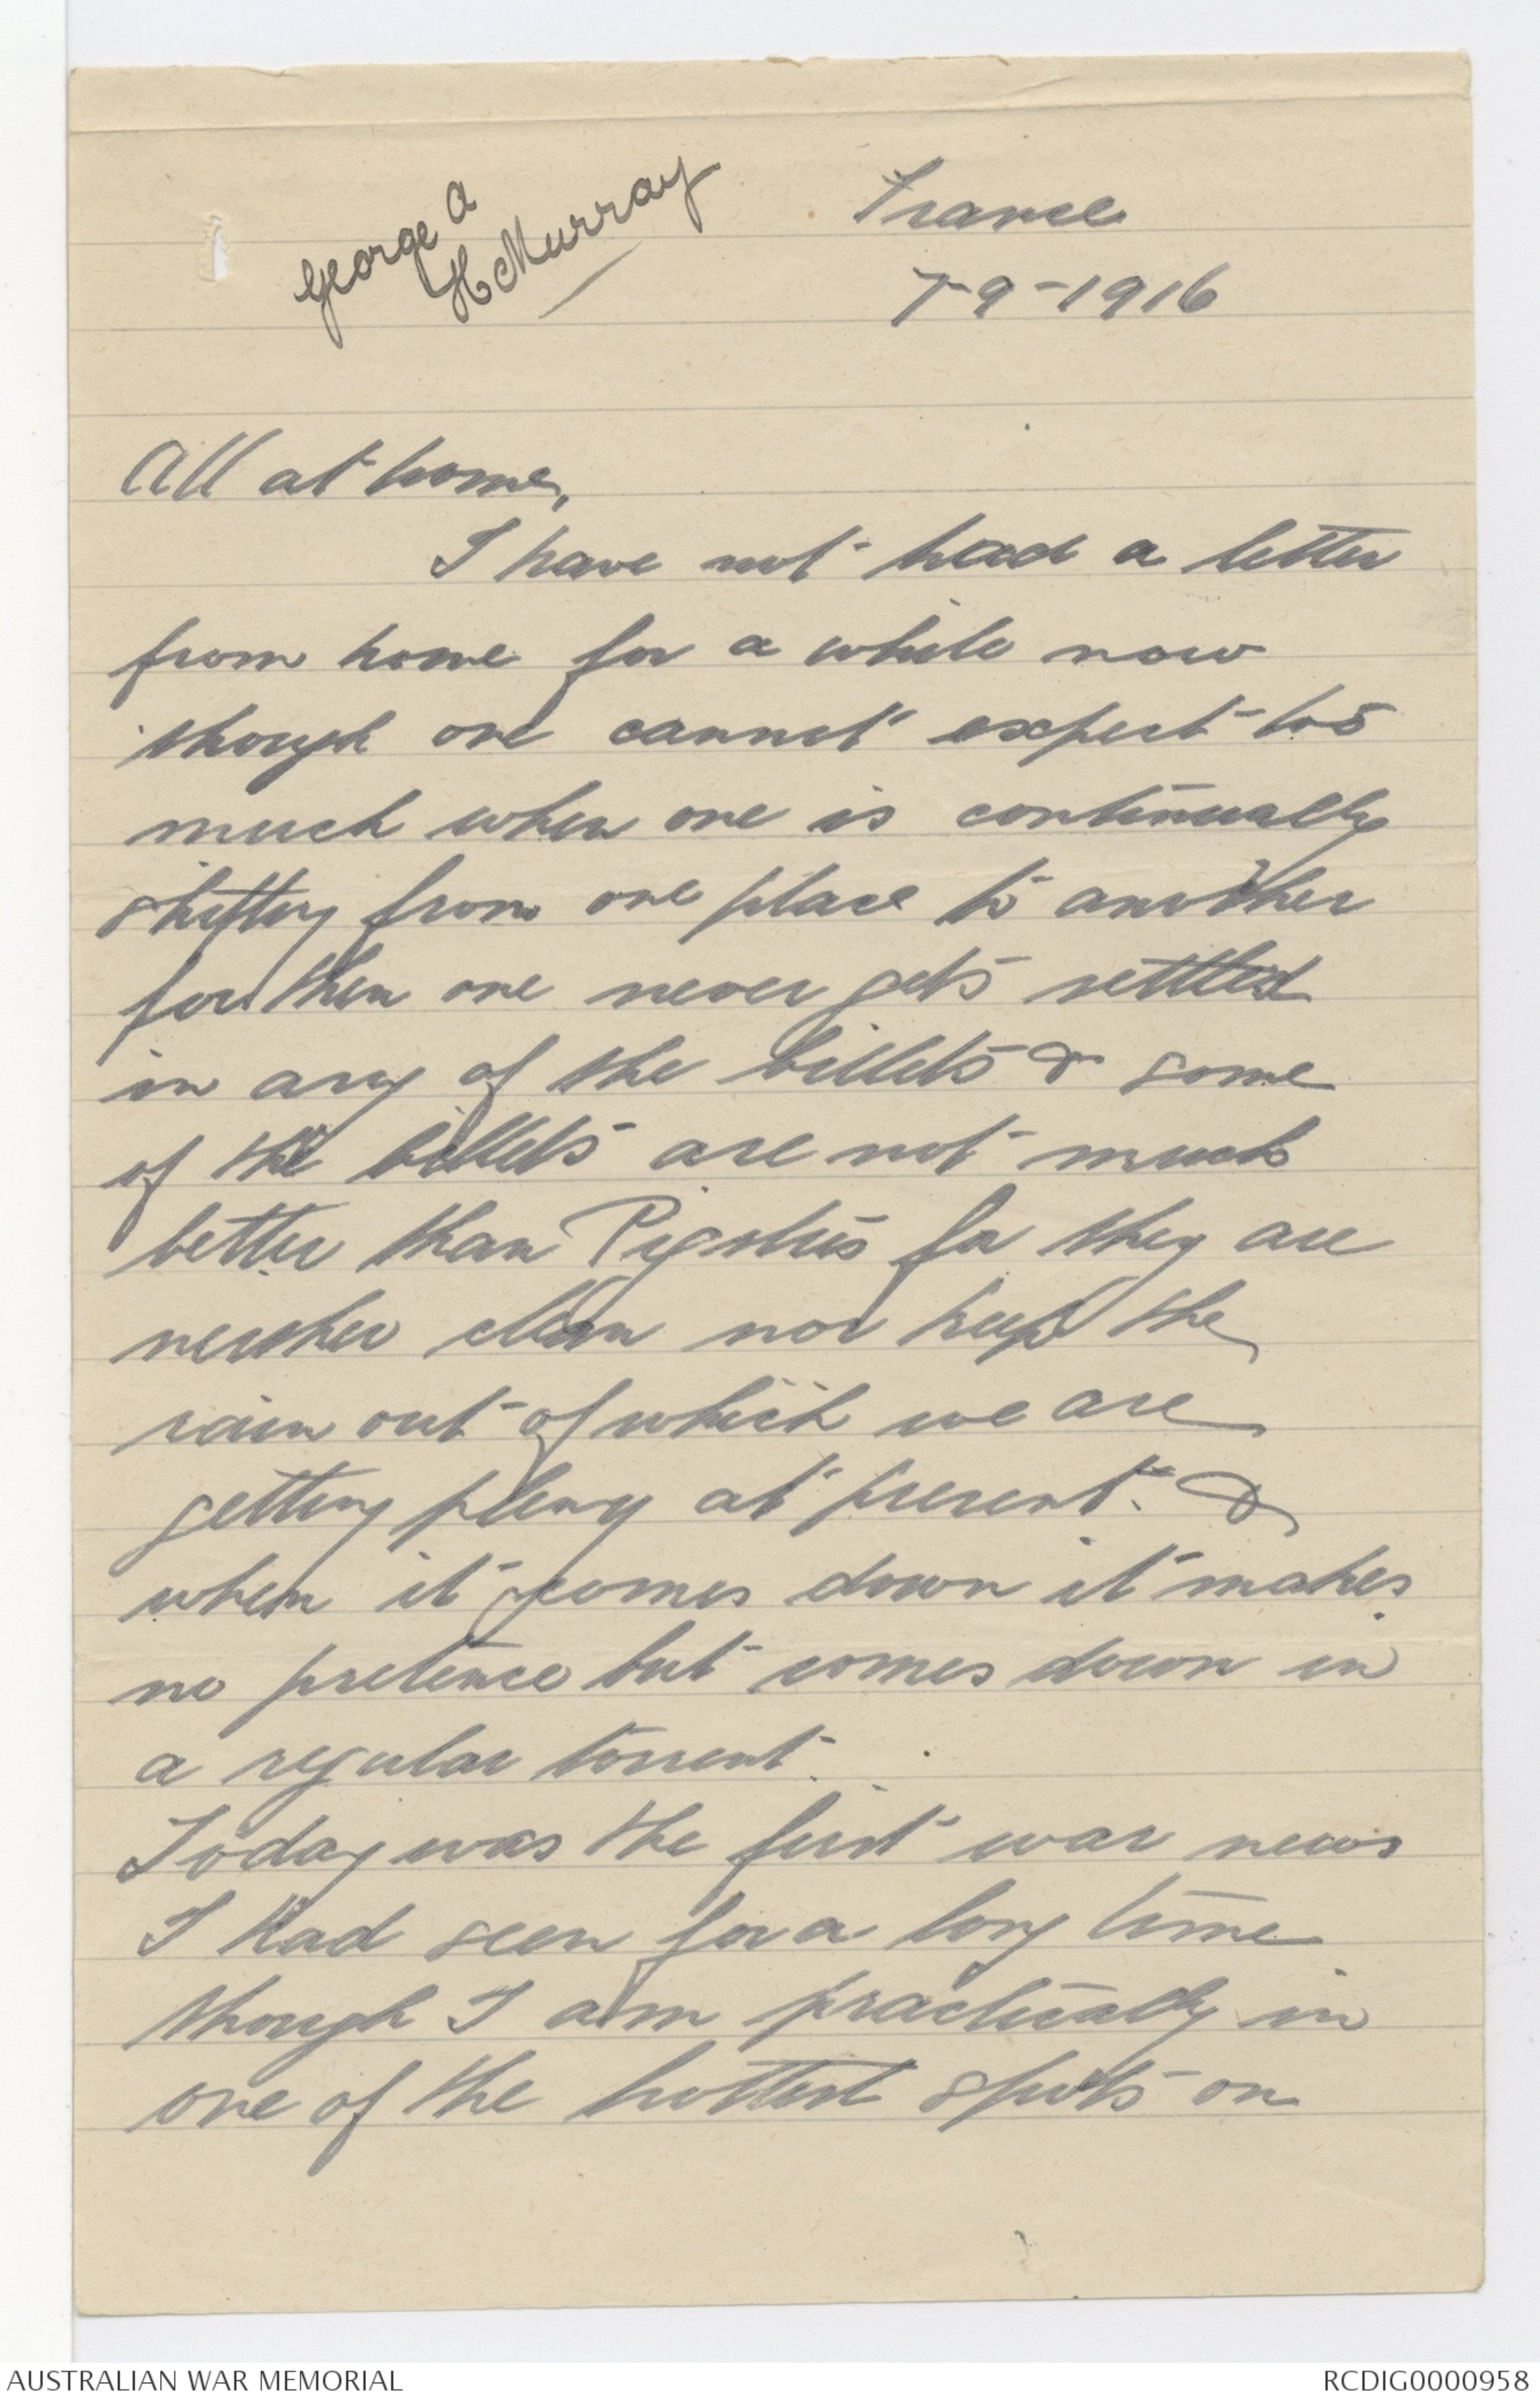 George A
H Murray
France
7-9-1916
All at home,
I have not had a letter
from home for a while now
though one cannot expect too
much when one is continually
shifting from one place to another
for then one never gets settled
in any of the billets & some
of the billets are not much
better than Pigsties for they are
neither clean nor keep the
rain out of which we are
getting plenty at present. &
when it comes down it makes
no pretence but comes down in
a regular torrent.
Today was the first war news
I had seen for a long time
though I am practically in
one of the hottest spots on
AUSTRALIAN WAR MEMORIAL
RCDIG0000958